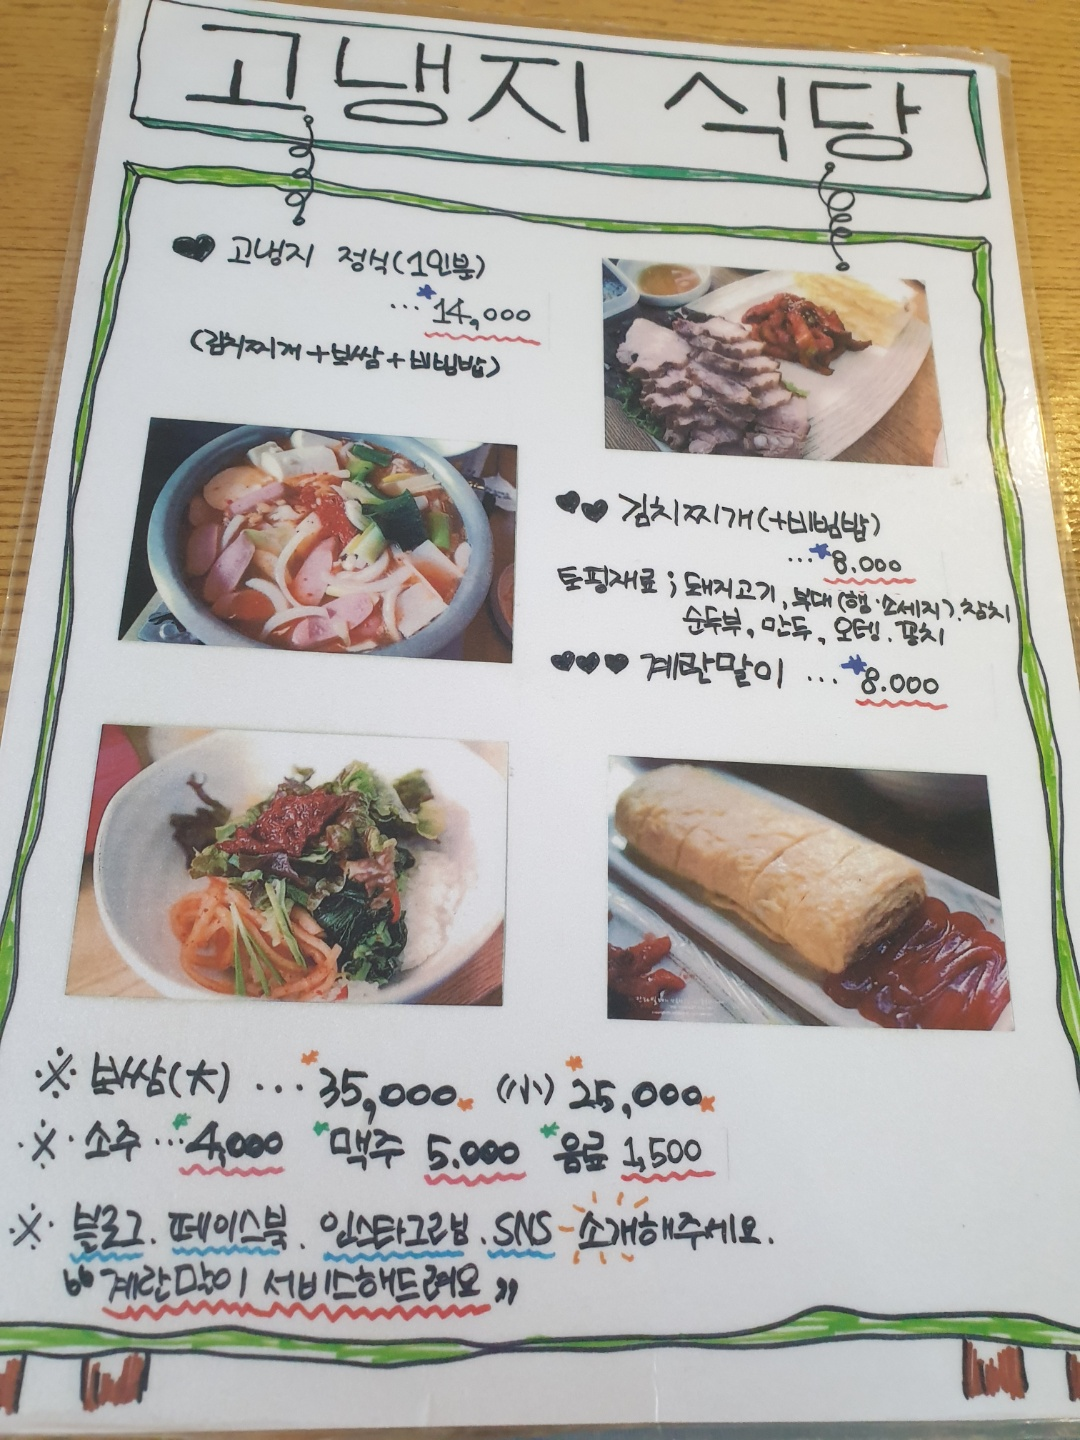 고냉지 식당
♥ 고냉지 정식(1인분)
...*14,000
(김치찌개+보쌈+비빔밥)
♥♥ 김치찌개(+비빔밥)
...*8.000
토핑재료 ; 돼지고기, 부대(햄·소세지), 참치
순두부, 만두, 오뎅. 꽁치
♥♥♥ 계란말이 ... *8.000
※ 보쌈(大) ... *35,000* (小) *25,000*
※ 소주 ...*4,000 *맥주 5.000 *음료 1,500
※ 블로그. 페이스북. 인스타그램. SNS 소개해주세요.
"계란말이 서비스해드려요"